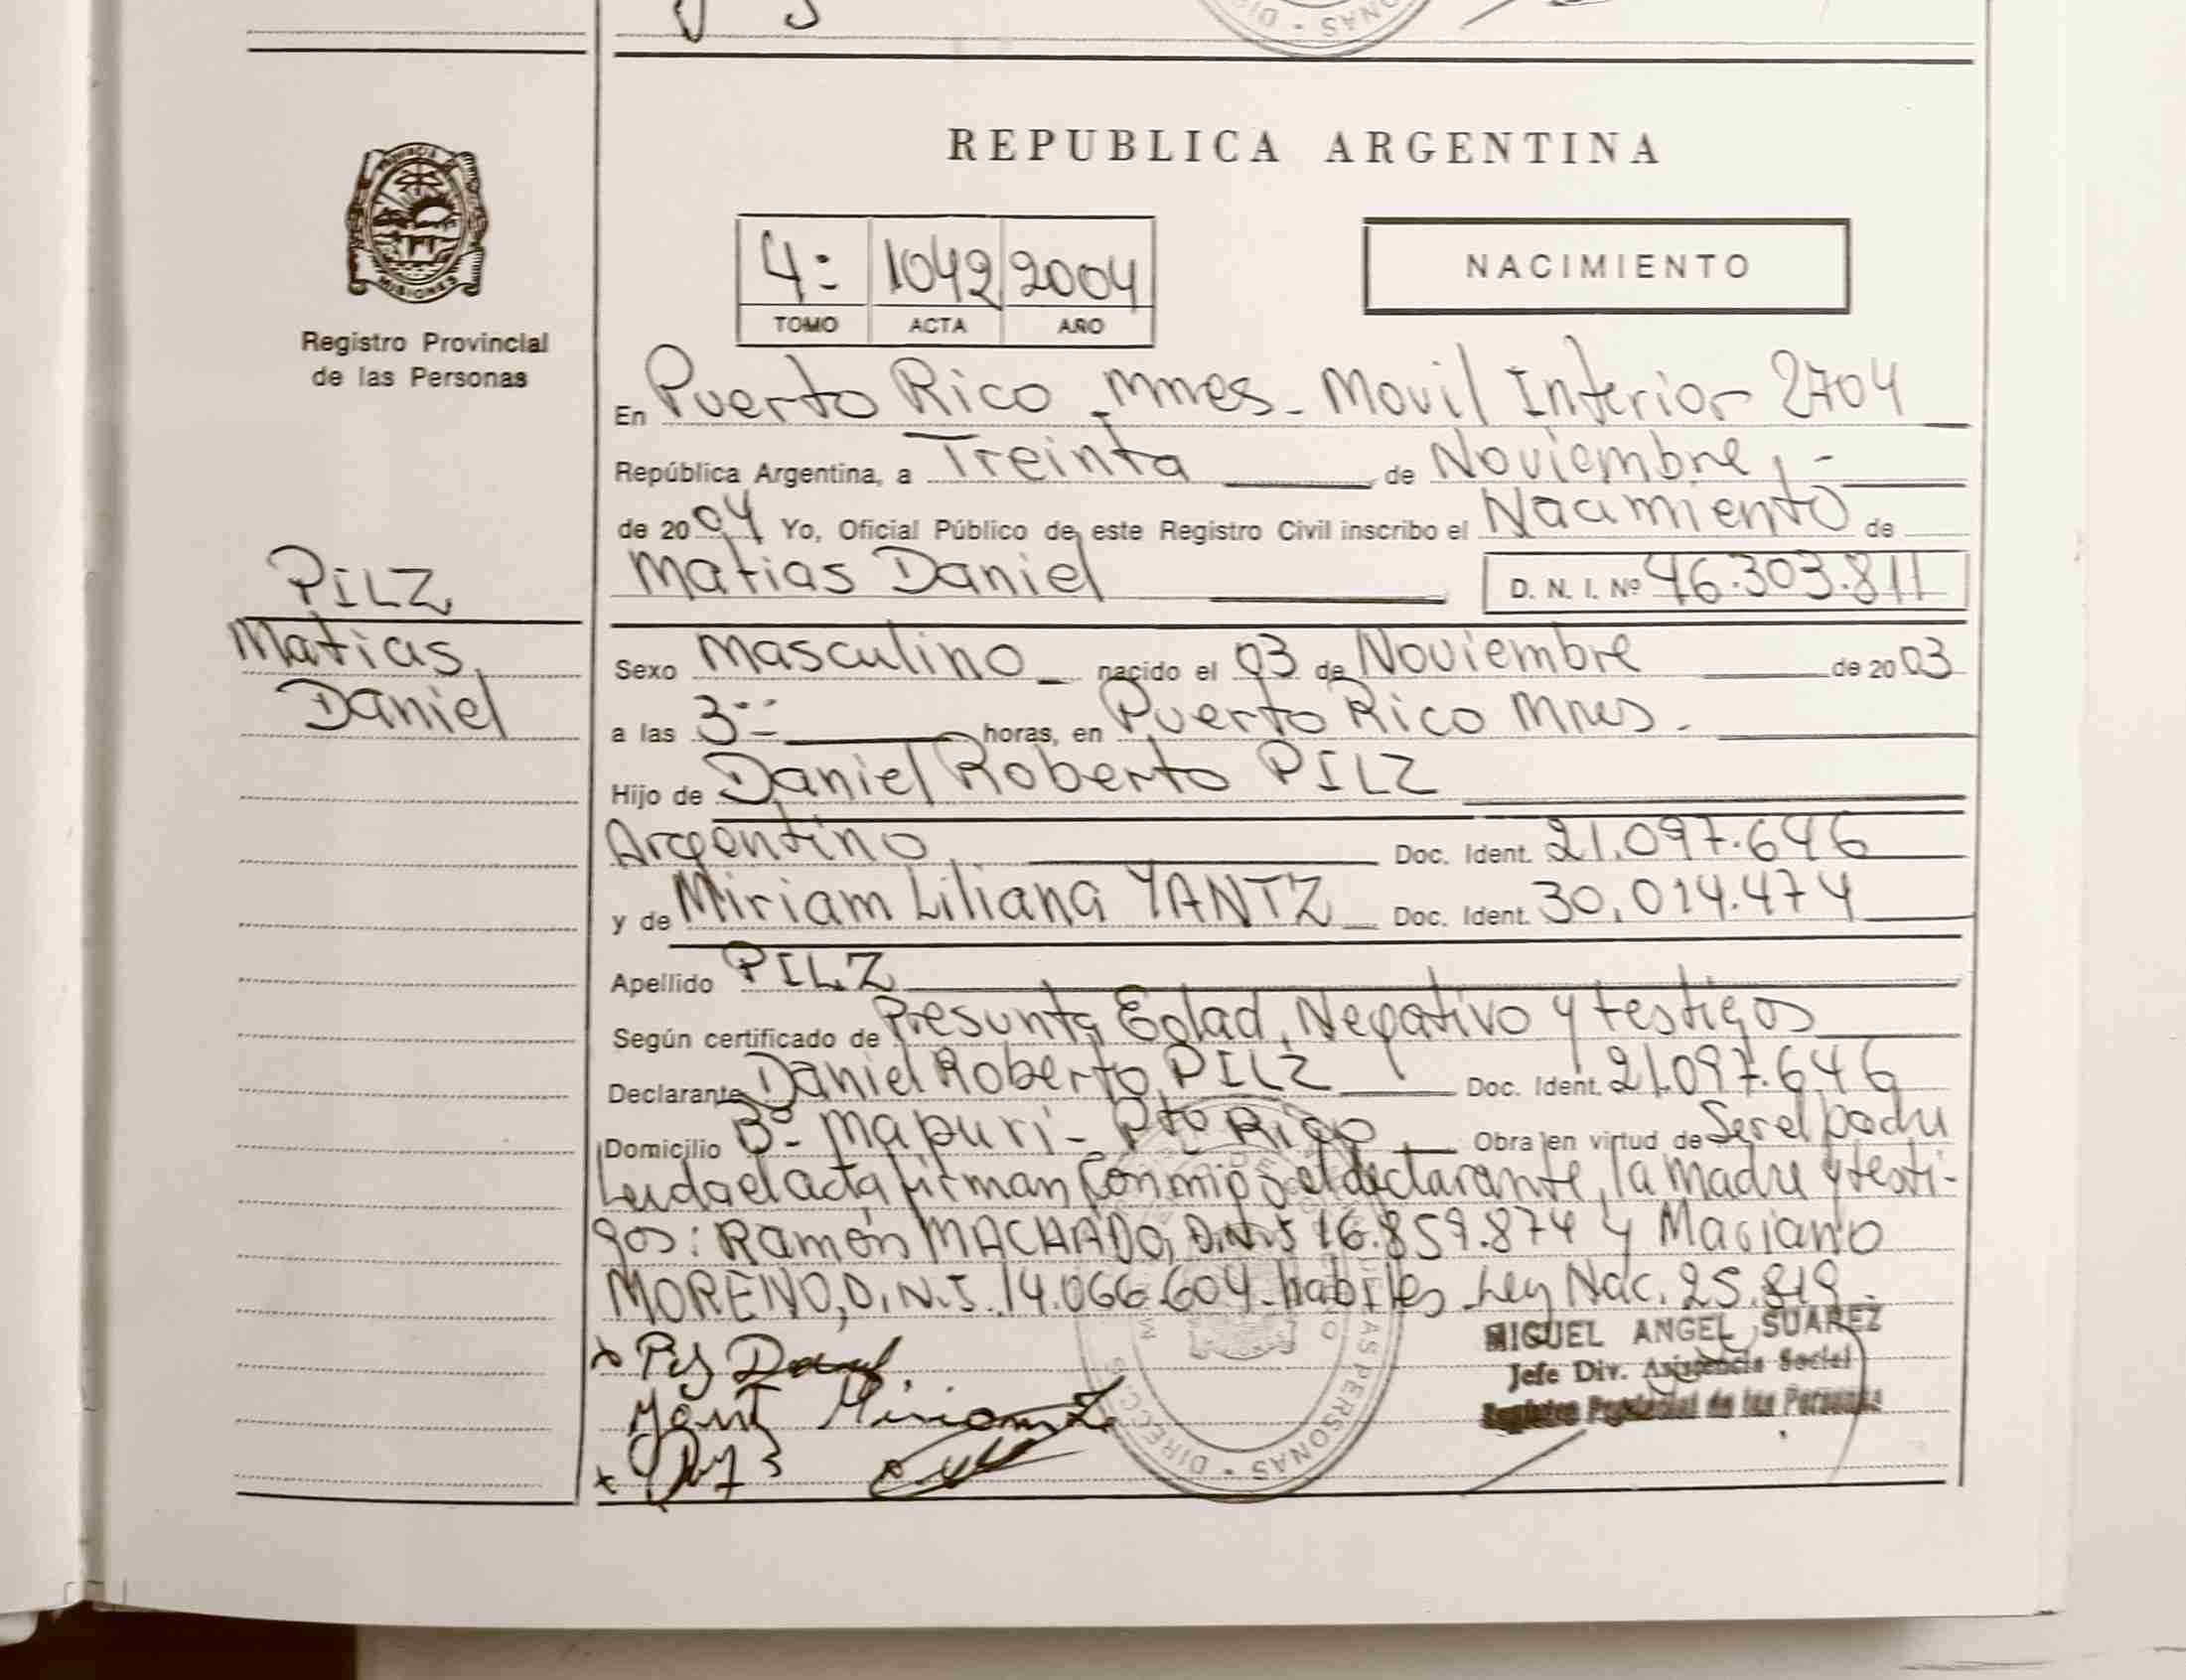 REPUBLICA ARGENTINA
4: 1042 2004
TOMO ACTA AÑO
NACIMIENTO
PROVINCIA
MISIONES
Registro Provincial
de las Personas
PILZ
Matias
Daniel
En Puerto Rico Mnes - Movil Interior 2704
República Argentina, a Treinta de Noviembre, -
de 2004 Yo, Oficial Público de este Registro Civil inscribo el Nacimiento de
Matias Daniel D. N. I. Nº 46.303.811
Sexo Masculino nacido el 03 de Noviembre de 2003
a las 3 horas, en Puerto Rico Mnes.
Hijo de Daniel Roberto PILZ
Argentino Doc. Ident. 21.097.646
y de Miriam Liliana YANTZ Doc. Ident. 30.014.474
Apellido PILZ
Según certificado de Presunta Edad, Negativo y testigos
Declarante Daniel Roberto PILZ Doc. Ident. 21.097.646
Domicilio Bº - Mapuri - Pto Rico Obra en virtud de Ser el padre
Leida el acta firman conmigo el declarante, la madre y testi-
gos: Ramón MACHADO, D.N.I 16.859.874 y Mariano
MORENO, D.N.I. 14.066.604 - habiles Ley Nac. 25.819.
MIGUEL ANGEL SUAREZ
Jefe Div. Asistencia Social
Registro Provincial de las Personas
Miriam